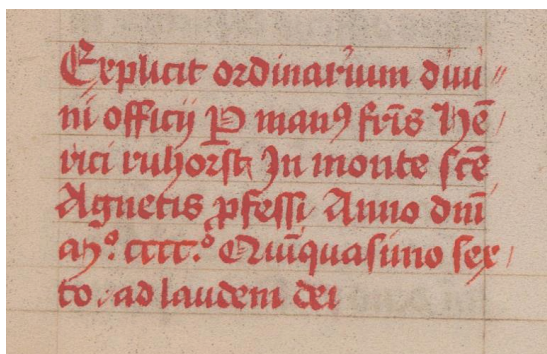 Explicit ordinarium diui〃
ni officij P manꝰ fr̄is Hē/
rici ruhorst/ In monte sc̄e
Agnetis ꝓfessi/ Anno dn̄i
Mº. ccccº. Qui̅quasimo sex/
to. ad laudem dei